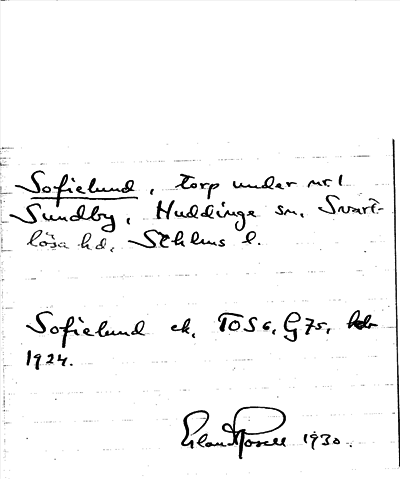 Sofielund, torp under nr 1
Sundby, Huddinge sn, Svart-
lösa hd, Sthlms l.
Sofielund ek. TOS 6, G 75,
1924.
Erland Rosell 1930.